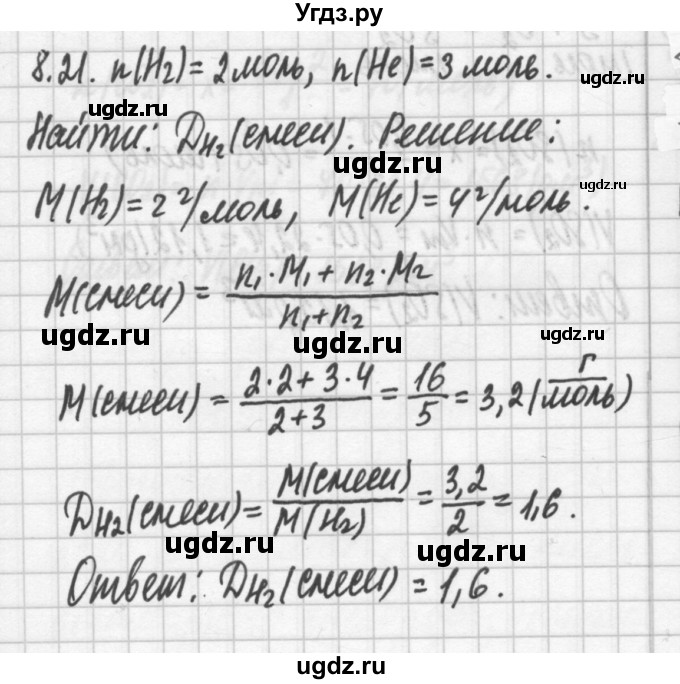 Угдз.ру
8.21. n(H₂) = 2 моль, n(He) = 3 моль.
ugdz.ru ugdz.ru
Найти: D_H₂(смеси). Решение:
ugdz.ru
M(H₂) = 2 г/моль, M(He) = 4 г/моль.
ugdz.ru ugdz.ru
M(смеси) = (n₁·M₁ + n₂·M₂)/(n₁+n₂)
ugdz.ru ugdz.ru ugdz.ru
M(смеси) = (2·2 + 3·4)/(2+3) = 16/5 = 3,2 (г/моль)
ugdz.ru ugdz.ru
D_H₂(смеси) = M(смеси)/M(H₂) = 3,2/2 = 1,6.
ugdz.ru ugdz.ru
Ответ: D_H₂(смеси) = 1,6.
ugdz.ru
ugdz.ru